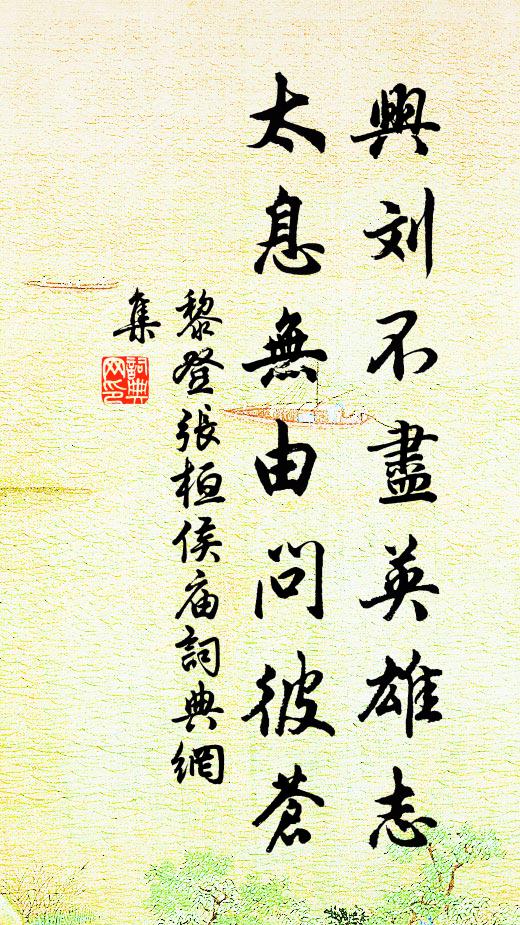 興刘不盡英雄志
太息無由問彼蒼
黎登張桓侯庙詞典網
集
詞典
网印